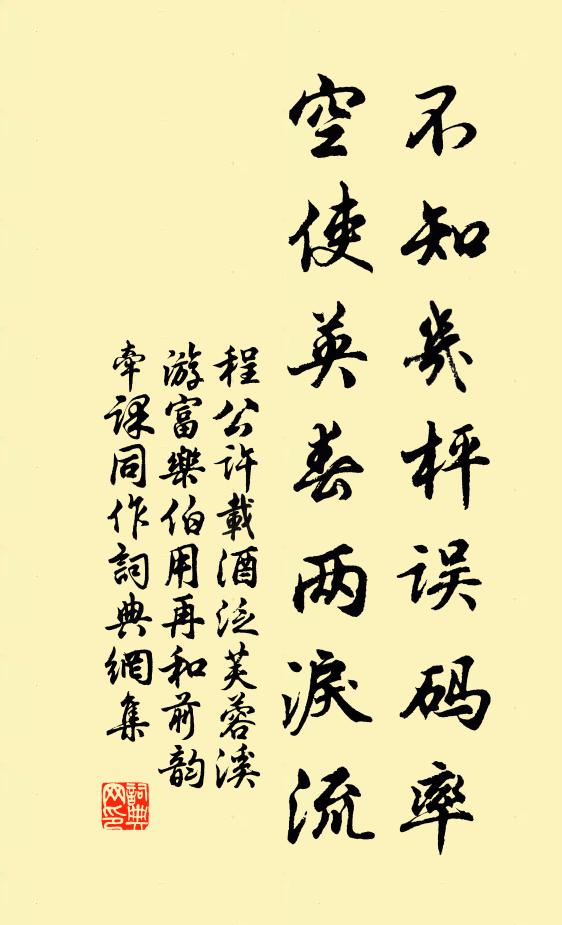 不知几枰误码率
空使英春两淚流
程公许載酒泛芙蓉溪
游富樂伯用再和前韵
牵课同作詞典網集
詞典網印